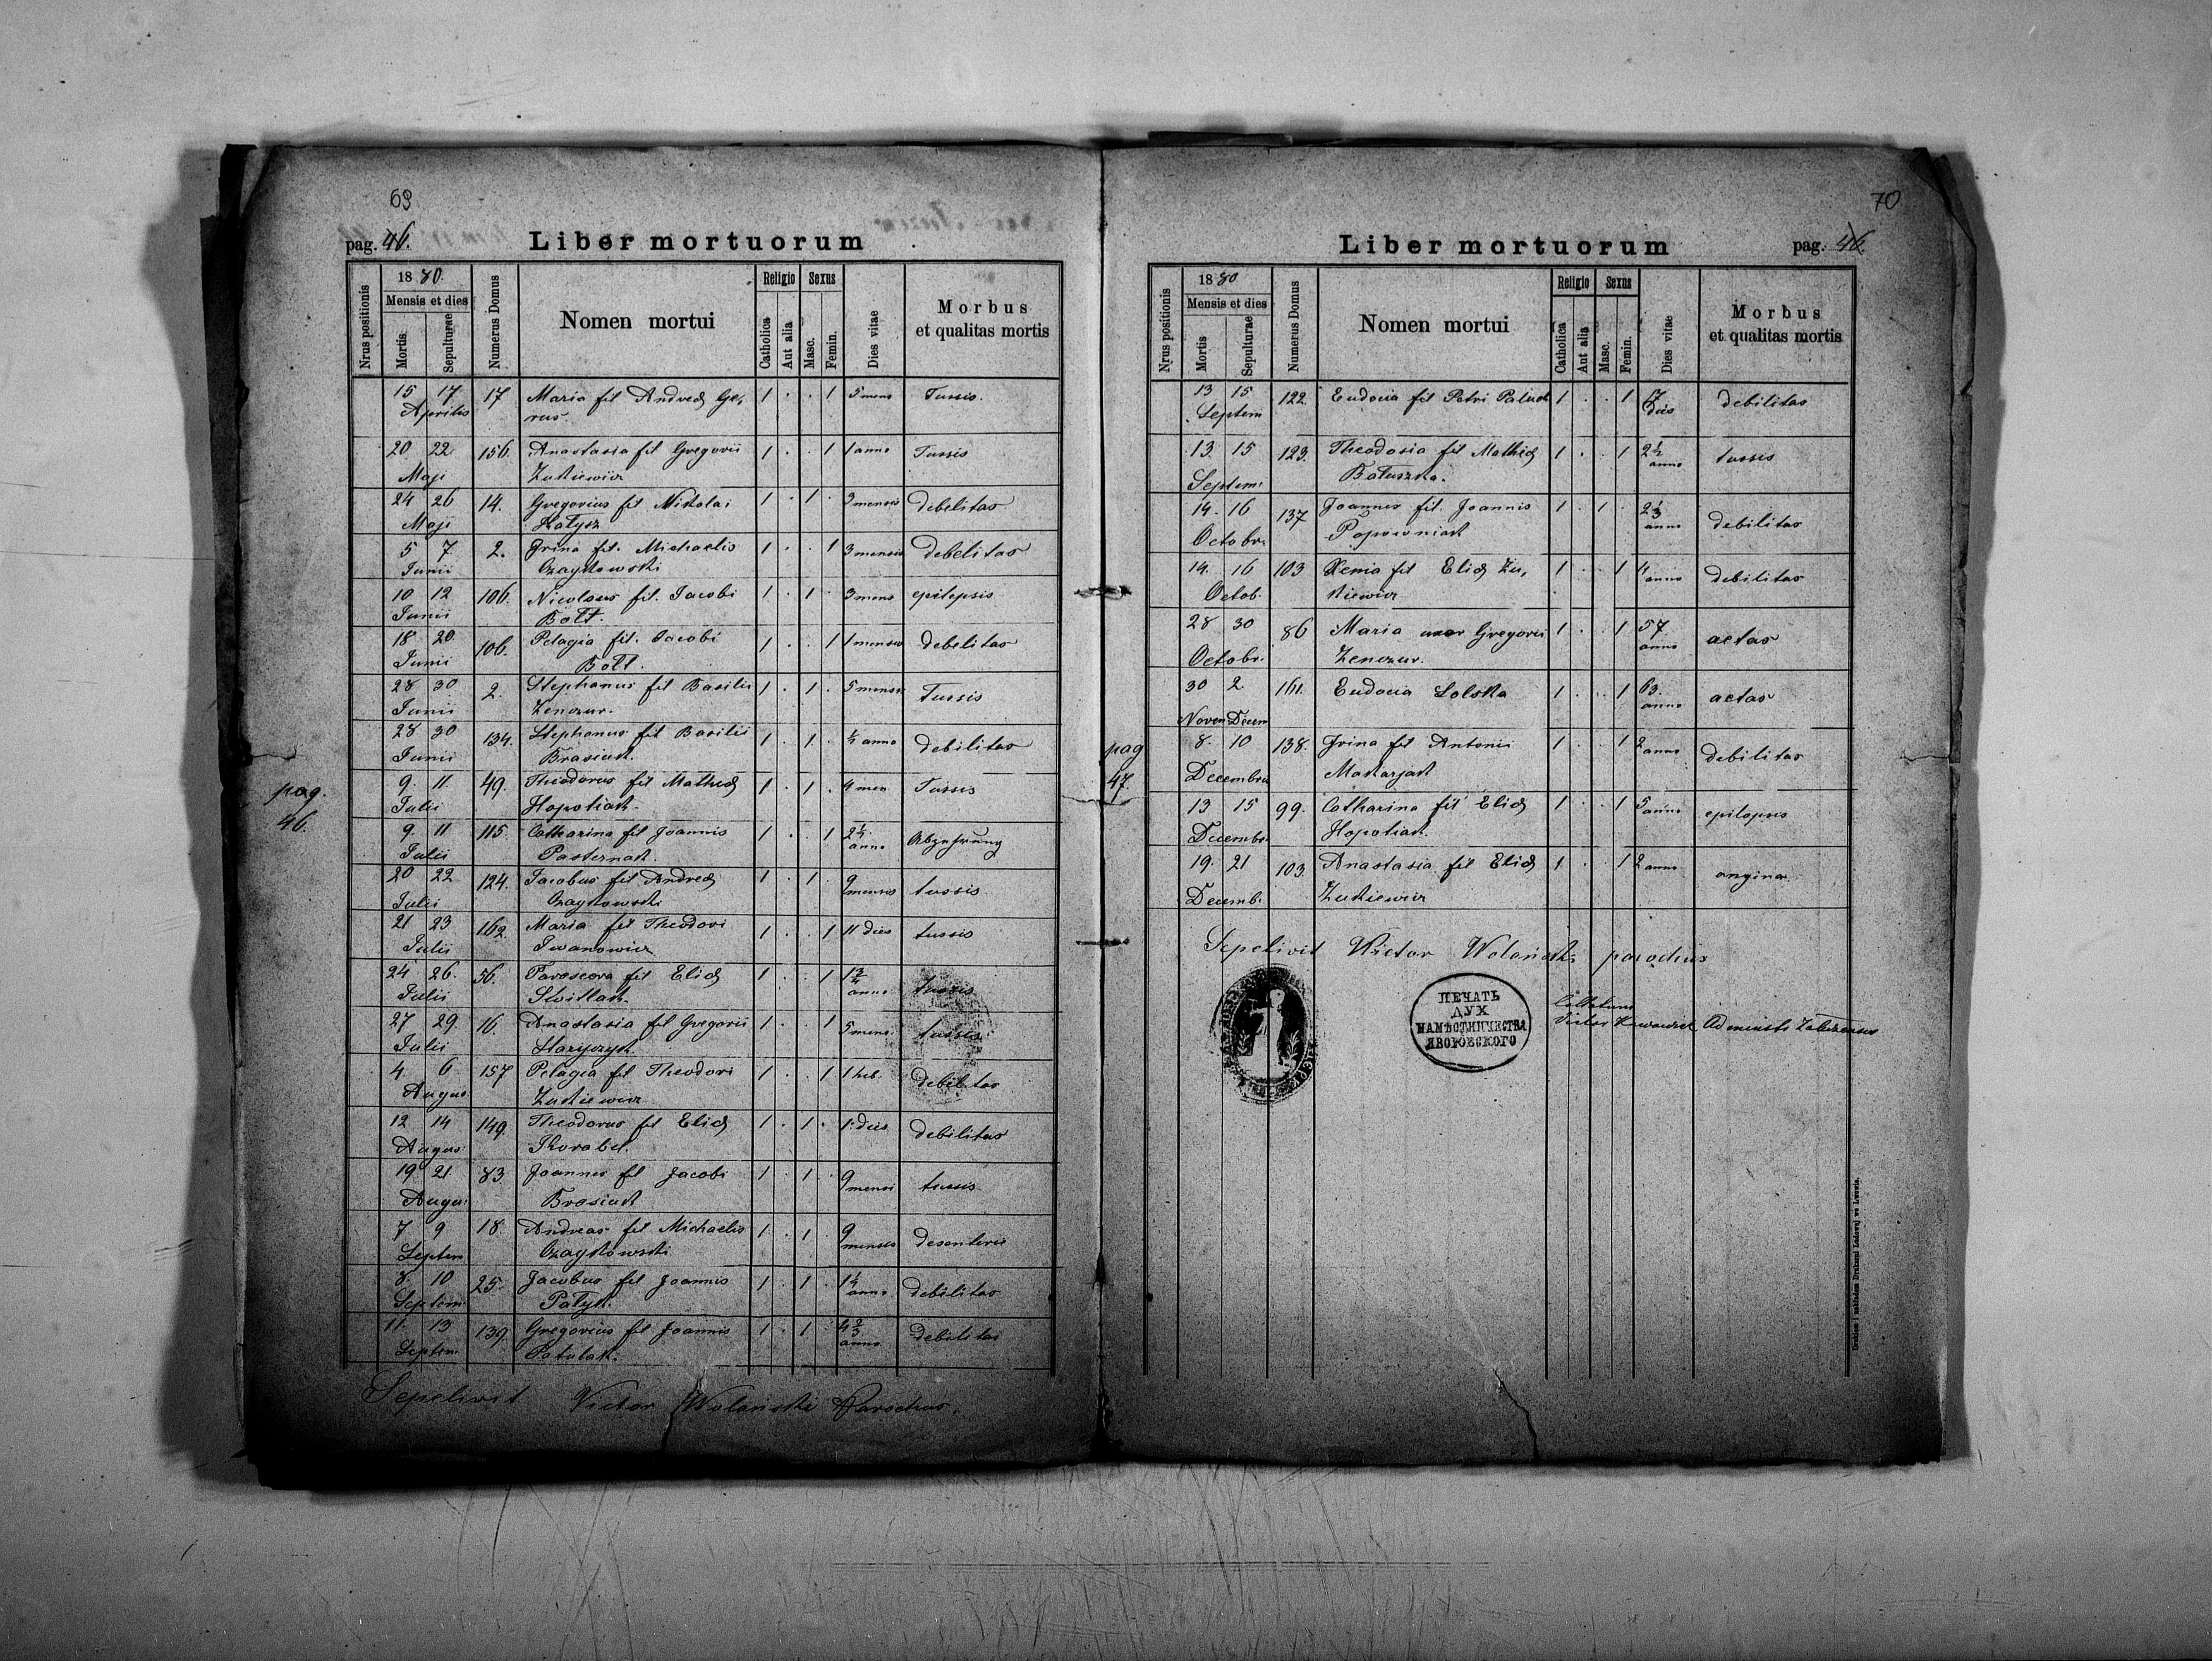 69
pag. 46.
Liber mortuorum
Nrus positionis
1880.
Mensis et dies
Mortis
Sepulturae
Numerus Domus
Nomen mortui
Religio
Catholica
Aut alia
Sexus
Masc.
Femin.
Dies vitae
Morbus
et qualitas mortis
15 17 17 Maria fil Andreæ Ge, 1 . . 1 5 mens Tussis.
Aprilis rus.
20 22 156. Anastasia fil Gregorii 1 . . 1 1 anno Tussis
Maji Zukiewicz
24 26 14. Gregorius fil Nikolai 1 . 1 . 3 mensis debelitas
Maji Hałysz
5 7 2. Irina fil. Michaelis 1 . . 1 3 mensis debelitas
Junii Czaykowski
10 12 106. Nicolaus fil. Jacobi 1 . 1 . 3 mens epilepsis
Junii Bołt.
18 20 106. Pelagia fil. Jacobi 1 . . 1 1 mensis debelitas
Junii Bołt.
28 30 2. Stephanus fil Basilii 1 . 1 . 5 mensis Tussis
Junii Zenczur.
28 30 134. Stephanus fil Basilii 1 . 1 . ½ anno debilitas
Junii Brasiak.
9. 11 49. Theodorus fil Mathiæ 1 . 1 . 4 men Tussis
Julii Hapoliak.
9. 11 115. Catharina fil Joannis 1 . . 1 2½ anno Abzehrung
Julii Pasternak.
20 22 124. Jacobus fil Andreæ 1 . 1 . 9 mensis tussis
Julii Czaykowski
21 23 162. Maria fil Theodori 1 . . 1 11 dies tussis
Julii Iwanowicz
24 26. 56. Parascewa fil Eliæ 1 . . 1 anno tussis
Julii Switlak.
27 29. 16. Anastasia fil Gregorii 1 . . 1 5 mens. tussis
Julii
4. 6 157 Pelagia fil Theodori 1 . . 1 1 heb. debilitas
Augus Zukiewicz
12 14 149. Theodorus fil Eliæ 1 . 1 . 1 dies debilitas
Augus Korabel.
19 21 83 Joannes fil Jacobi 1 . 1 . 9 mensi tussis
Augus Brasiak
7 9 18. Andreas fil Michaelis 1 . 1 . 9 mensis desenteria
Septem Czaykowski
8. 10 25. Jacobus fil Joannis 1 . 1 . 1½ anno debilitas
Septem Pałyk.
11. 13 139 Gregorius fil Joannis 1 . 1 . anno debilitas
Septem Patulak.
pag.
46.
Sepelivit Victor Wolański Parochus.
70
Liber mortuorum
pag. 46.
Nrus positionis
1880
Mensis et dies
Mortis
Sepulturae
Numerus Domus
Nomen mortui
Religio
Catholica
Aut alia
Sexus
Masc.
Femin.
Dies vitae
Morbus
et qualitas mortis
13 15 122 Eudocia fil Petri 1 . . 1 17 dies debilitas
Septem
13 15 123. Theodosia fil Mathiæ 1 . . 1 2½ anno tussis
Septem Bałuszka.
14. 16 137 Joannes fil. Joannis 1 . 1 . anno debilitas
Octobr. Popowniak
14. 16 103 Xenia fil Eliæ Zu, 1 . . 1 4 anno debilitas
Octob. kiewicz
28 30 86 Maria uxor Gregorii 1 . . 1 57. anno aetas
Octobr. Zenczur.
30 2 161. Eudocia Solska 1 . . 1 63. anno aetas
Novem Decem
8. 10 138. Irina fil Antonii 1 . . 1 2 anno debilitas
Decembris Makarjak
13 15 99. Catharina fil Eliæ 1 . . 1 5 anno epilepsis
Decembr. Hapoliak.
19. 21 103 Anastasia fil Eliæ 1 . . 1 2 anno angina
Decemb. Zukiewicz
pag
47.
Sepelivit Wictor Wolański parochus
ПЕЧАТЬ
ДУХ
НАМѢСТНИЧЕСТВА
ЯВОРОВСКОГО
Drukiem i nakładem Drukarni Ludowej we Lwowie.